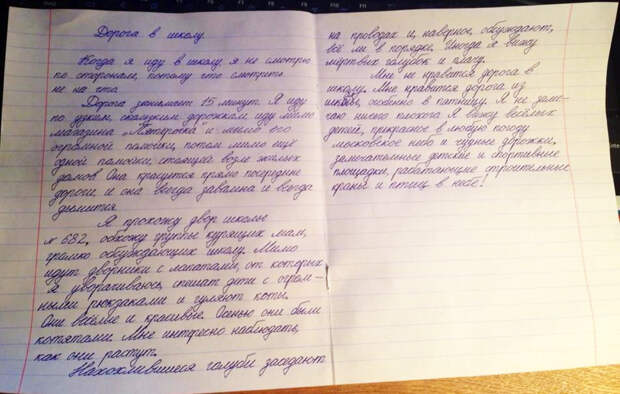 Дорога в школу.
Когда я иду в школу, я не смотрю
по сторонам, потому что смотреть
не на что.
Дорога занимает 15 минут. Я иду
по узким, скользким дорожкам, иду мимо
магазина "Пятёрочка" и мимо его
огромной помойки, потом мимо ещё
одной помойки, стоящей возле жилых
домов. Она красуется прямо посередине
дороги, и она всегда завалена и всегда
дымится.
Я прохожу двор школы
№ 682, обхожу группы курящих мам,
громко обсуждающих школу. Мимо
идут дворники с лопатами, от которых
я уворачиваюсь, спешат дети с огром-
ными рюкзаками и гуляют коты.
Они весёлые и красивые. Осенью они были
котятами. Мне интересно наблюдать,
как они растут.
Нахохлившиеся голуби заседают
на проводах и, наверное, обсуждают,
всё ли в порядке. Иногда я вижу
мёртвых голубок и плачу.
Мне не нравится дорога в
школу. Мне нравится дорога из
школы, особенно в пятницу. Я не заме-
чаю ничего плохого. Я вижу весёлых
детей, прекрасное в любую погоду
московское небо и чудные дорожки,
замечательные детские и спортивные
площадки, работающие строительные
краны и птиц в небе!